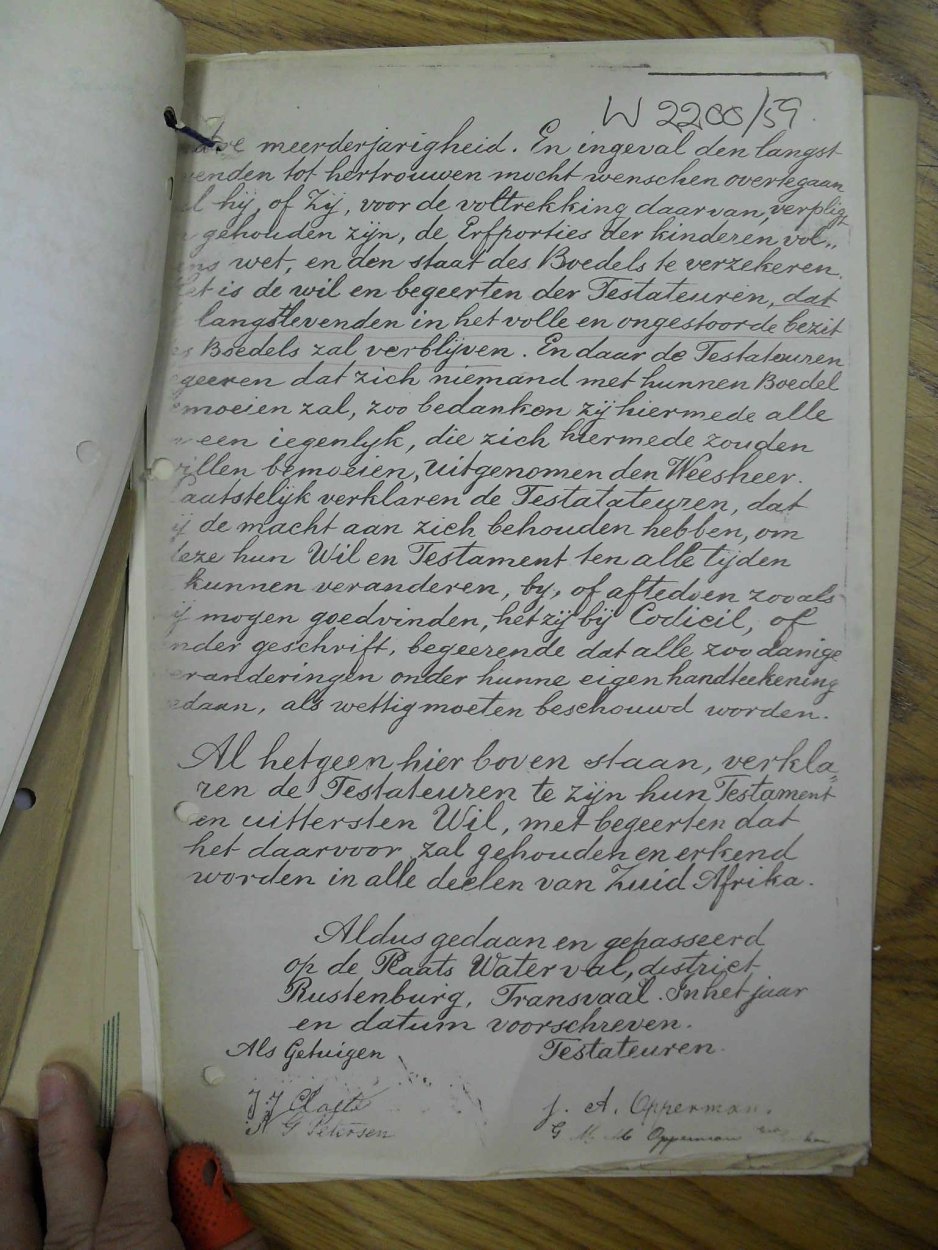 W 2200/59
meerderjarigheid. En ingeval den langst
venden tot hertrouwen mocht wenschen overtegaan
l hij, of Zij, voor de voltrekking daarvan, verpligt
gehouden zijn, de Erfporties der kinderen vol„
ens wet, en den staat des Boedels te verzekeren.
Het is de wil en begeerten der Testateuren, dat
langstlevenden in het volle en ongestoorde bezit
es Boedels zal verblijven. En daar de Testateuren
geeren dat zich niemand met hunnen Boedel
moeien zal, zoo bedanken zij hiermede alle
een iegenlyk, die zich hiermede zouden
willen bemoeien, uitgenomen den Weesheer.
aatstelijk verklaren de Testatateuren, dat
ij de macht aan zich behouden hebben, om
deze hun Wil en Testament ten alle tijden
kunnen veranderen, by, of aftedoen zooals
ij mogen goedvinden, het zij bij Codicil, of
nder geschrift, begeerende dat alle zoodanige
eranderingen onder hunne eigen handteekening
edaan, als wettig moeten beschouwd worden.
Al hetgeen hier boven staan, verkla„
ren de Testateuren te zijn hun Testament
en uittersten Wil, met begeerten dat
het daarvoor zal gehouden en erkend
worden in alle deelen van Zuid Afrika.
Aldus gedaan en gepasseerd
op de Plaats Waterval, district
Rustenburg, Transvaal. In het jaar
en datum voorschreven.
Als Getuigen
Testateuren.
J J Cloete
G Petersen
J. A. Opperman.
G M M Opperman